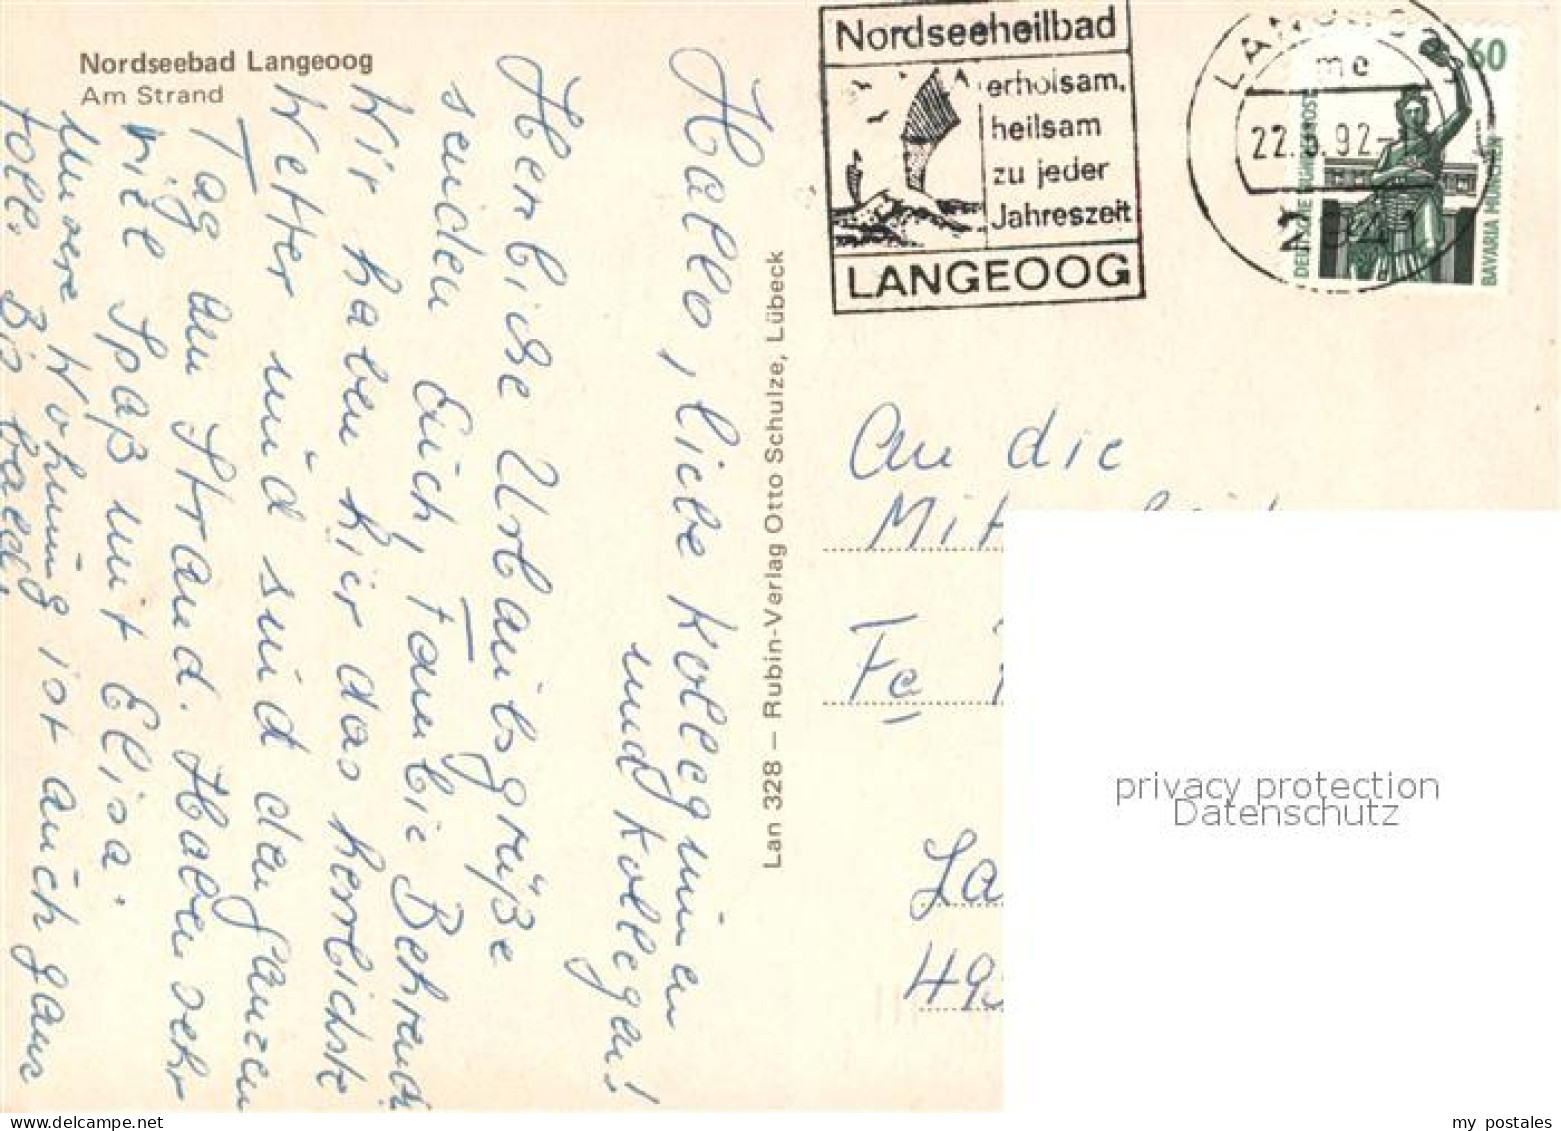 Nordseebad Langeoog
Am Strand
Hallo, liebe Kolleginnen
und Kollegen!
Herzliche Urlaubsgrüße
senden Euch, Familie Behrend
Wir haben hier das herrlichste
Wetter und sind den ganzen
Tag am Strand. Haben sehr
viel Spaß mit Elisa.
Unsere Wohnung ist auch ganz
toll. Bis bald,
Lan 328 – Rubin-Verlag Otto Schulze, Lübeck
Nordseeheilbad
erholsam,
heilsam
zu jeder
Jahreszeit
LANGEOOG
LANGEOOG
me
22. .92-1
60
DEUTSCHE BUNDESPOST
BAVARIA MÜNCHEN
An die
Mit
Fa,
La
49
privacy protection
Datenschutz
my postales